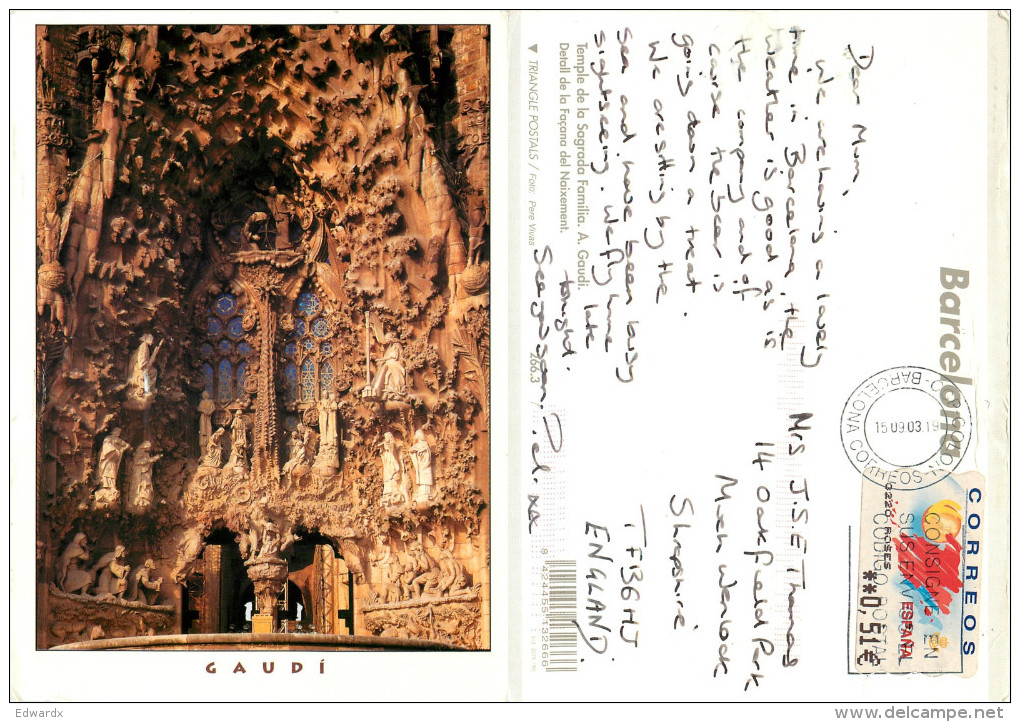 GAUDÍ
Barcelona
Dear Mum,
We are having a lovely
time in Barcelona, the
weather is good as is
the company and of
course the beer is
going down a treat.
We are sitting by the
sea and have been busy
sightseeing. We fly home
late
tonight.
See you soon.
xx
Mrs J.S.E Thomas
14 Oakfield Park
Much Wenlock
Shropshire
TF13 6HJ
ENGLAND.
Temple de la Sagrada Família. A. Gaudí.
Detall de la Façana del Naixement.
▼ TRIANGLE POSTALS / Foto: Pere Vivas
266.3
8 424455 132666
BARCELONA CORREOS
15 09 03 19
CORREOS
ESPAÑA
**0,51€
0220 ROSES
CONSIGNE EN
SUS ENVIOS EL
CODIGO POSTAL
Edwardx
www.delcampe.net